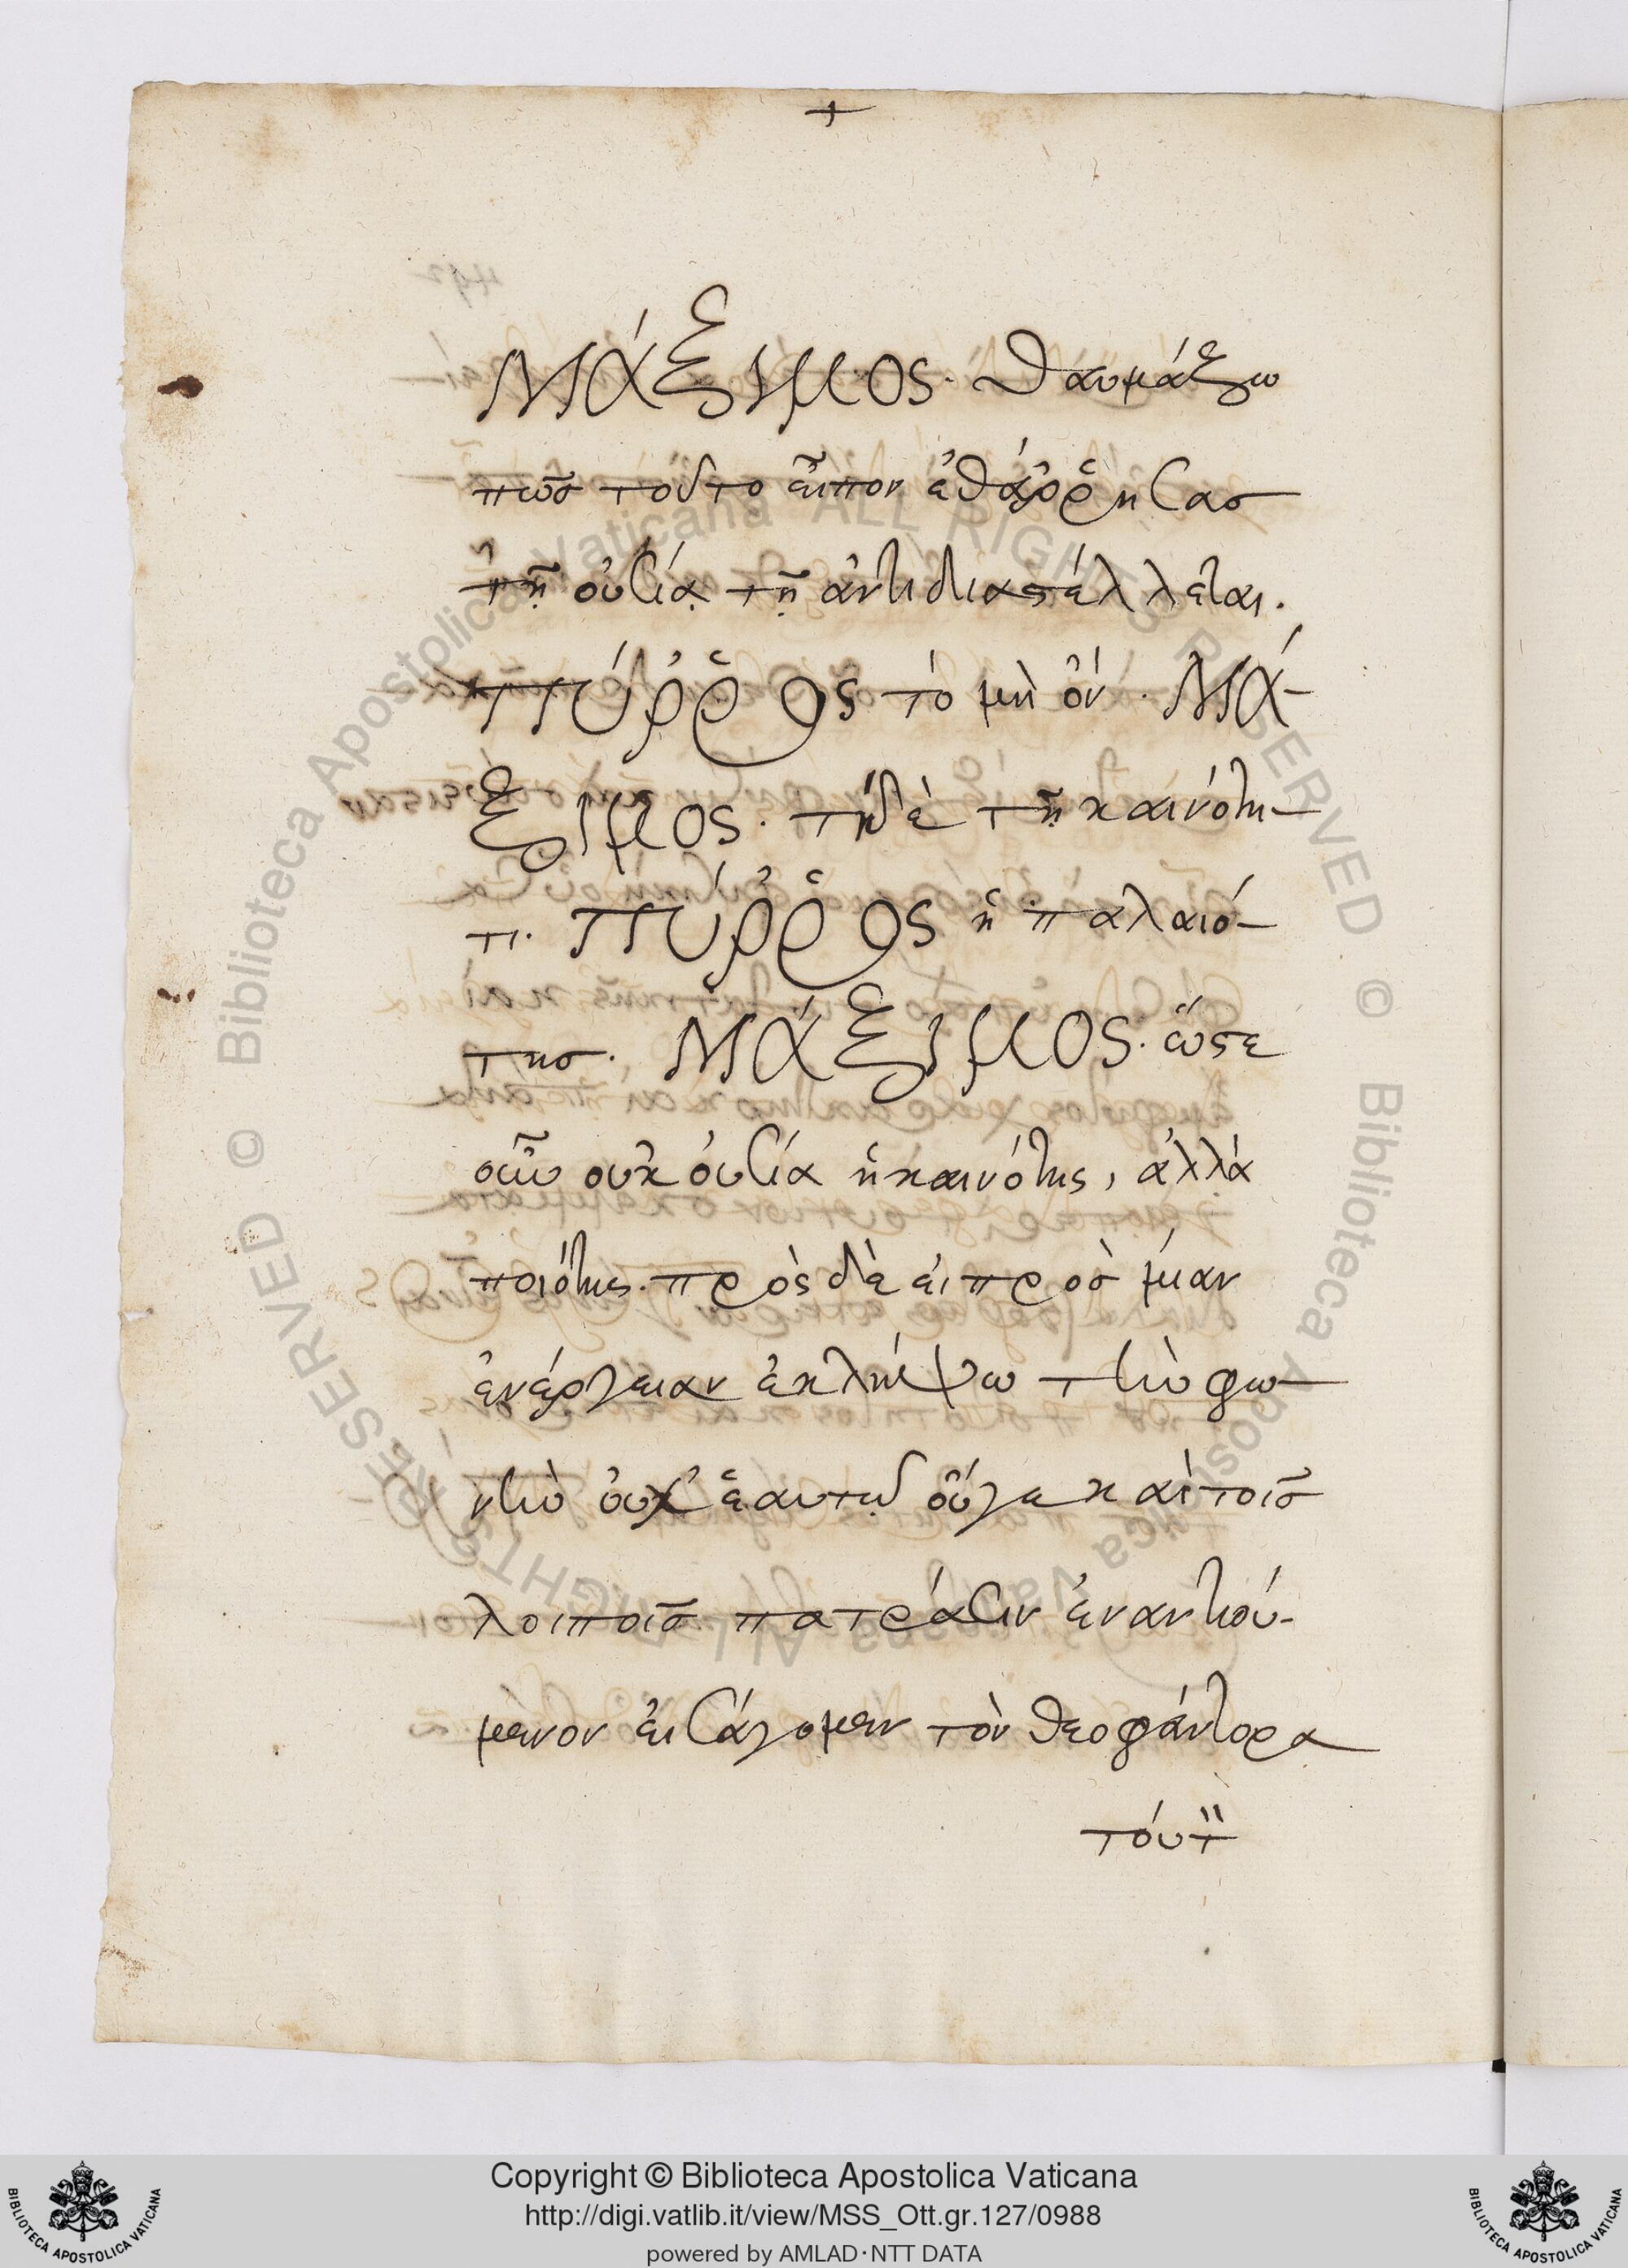 +
ΜΆΞΙΜΟς. Θαυμάζω
πῶσ τοῦτο εἶπον ἐθάῤῥησασ
τῆ οὐσία τῆ ἀντιδιαστέλλεται.
ΠΎῤῥΟς τὸ μὴ ὄν. ΜΆ-
ΞΙΜΟς. τῆ δὲ τῆ καινότη-
τι. ΠΎῤῥΟς ἡ παλαιό-
τησ. ΜΆΞΙΜΟς. ὥστε
οὖν οὐκ οὐσία ἡ καινότης, ἀλλὰ
ποιότης. πρὸς δὲ εἰ προσ μίαν
ἐνέργειαν ἐκλήψω τὴν φω-
νὴν οὐχ ἑαυτῷ οὔγε καὶ τοῖσ
λοιποῖσ πατράσιν ἐναντιού-
μενον εἰσάγομεν τὸν θεοφάντορα
Copyright © Biblioteca Apostolica Vaticana
http://digi.vatlib.it/view/MSS_Ott.gr.127/0988
powered by AMLAD·NTT DATA
BIBLIOTECA APOSTOLICA VATICANA
BIBLIOTECA APOSTOLICA VATICANA
© Biblioteca Apostolica Vaticana ALL RIGHTS RESERVED
© Biblioteca Apostolica Vaticana ALL RIGHTS RESERVED